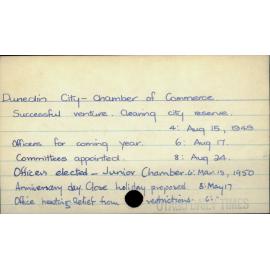 Dunedin City - Chamber of Commerce
Successful venture. Clearing city reserve.
4: Aug 15, 1949
Officers for coming year. 6: Aug 17.
Committees appointed. 8: Aug 24.
Officers elected - Junior Chamber. 6: Mar. 15, 1950
Anniversary day. Close holiday proposed 8: May 17
Office heating Relief from restrictions. 6:
OTAGO DAILY TIMES